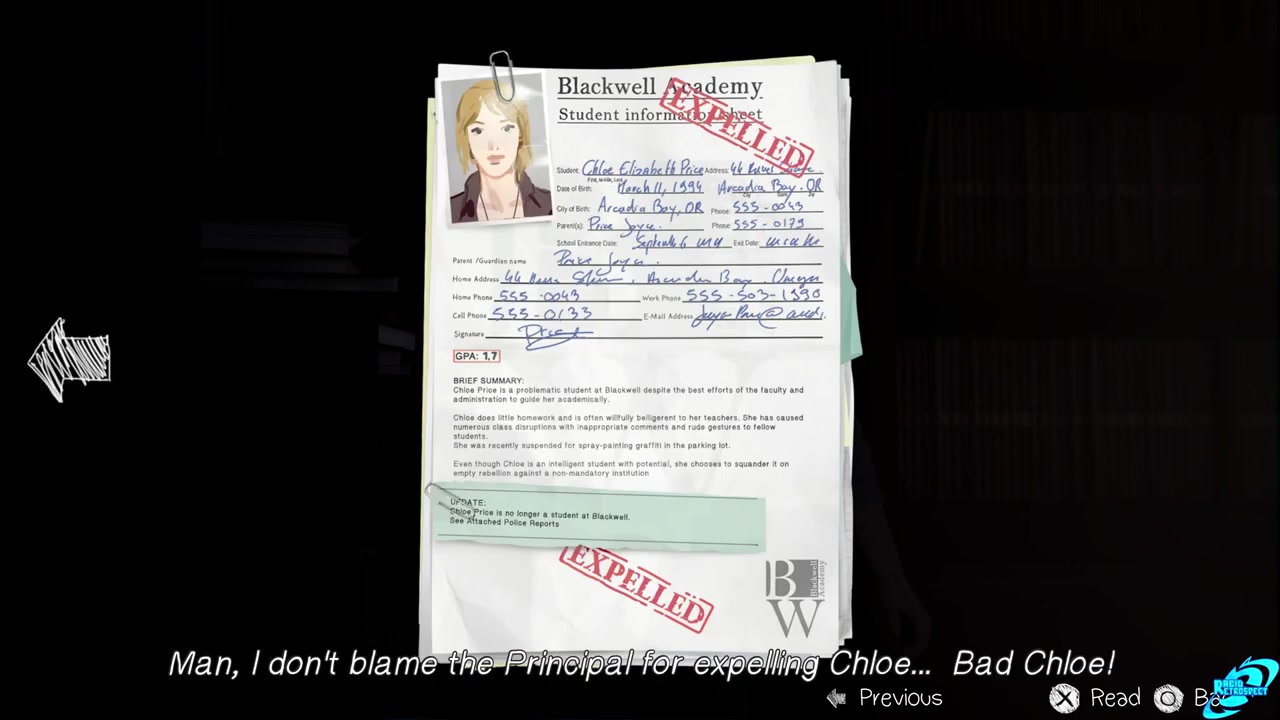 Blackwell Academy
Student information sheet
EXPELLED
Student: Chloe Elizabeth Price Address: 44
First, Middle, Last
Date of Birth: March 11, 1994 Arcadia Bay, OR
City of Birth: Arcadia Bay, OR Phone: 555-0043
Parent(s): Price Joyce. Phone: 555-0179
School Entrance Date: September Exit Date:
Parent /Guardian name Price Joyce.
Home Address 44 Arcadia Bay, Oregon
Home Phone 555-0043 Work Phone 555-503-1990
Cell Phone 555-0133 E-Mail Address
Signature Price
GPA: 1,7
BRIEF SUMMARY:
Chloe Price is a problematic student at Blackwell despite the best efforts of the faculty and
administration to guide her academically.
Chloe does little homework and is often willfully belligerent to her teachers. She has caused
numerous class disruptions with inappropriate comments and rude gestures to fellow
students.
She was recently suspended for spray-painting graffiti in the parking lot.
Even though Chloe is an intelligent student with potential, she chooses to squander it on
empty rebellion against a non-mandatory institution
UPDATE:
Chloe Price is no longer a student at Blackwell.
See Attached Police Reports
EXPELLED
BW
Blackwell
Academy
Man, I don't blame the Principal for expelling Chloe... Bad Chloe!
Previous
Read
RAPID
RETROSPECT